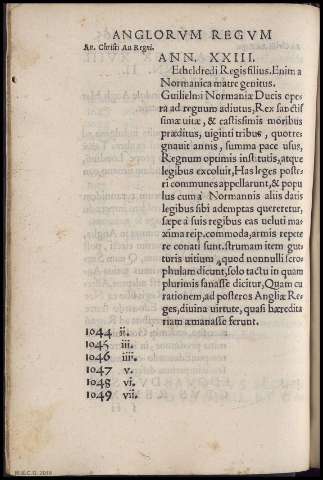 ANGLORVM REGVM
Re. Christi An Regni.
ANN. XXIII.
Etheldredi Regis filius. Enim a
Normanica matre genitus.
Guilielmi Normaniæ Ducis ope
ra ad regnum adiutus, Rex sanctis
simæ uitæ, & castissimis moribus
præditus, uiginti tribus, quot re
gnauit annis, summa pace usus,
Regnum optimis institutis, atque
legibus excoluit, Has leges poste
ri communes appellarunt, & popu
lus cum à Normannis alijs datis
legibus sibi ademptas quereretur,
sæpe à suis regibus eas ueluti ma
xima reip. commoda, armis repete
re conati sunt. strumam item gut
turis uitium, quod nonnulli scro
phulam dicunt, solo tactu in quam
plurimis sanasse dicitur, Quam cu
rationem, ad posteros Angliæ Re
ges, diuina uirtute, quasi hæredita
riam amanasse ferunt.
1044 ii.
1045 iii.
1046 iiii.
1047 v.
1048 vi.
1049 vii.